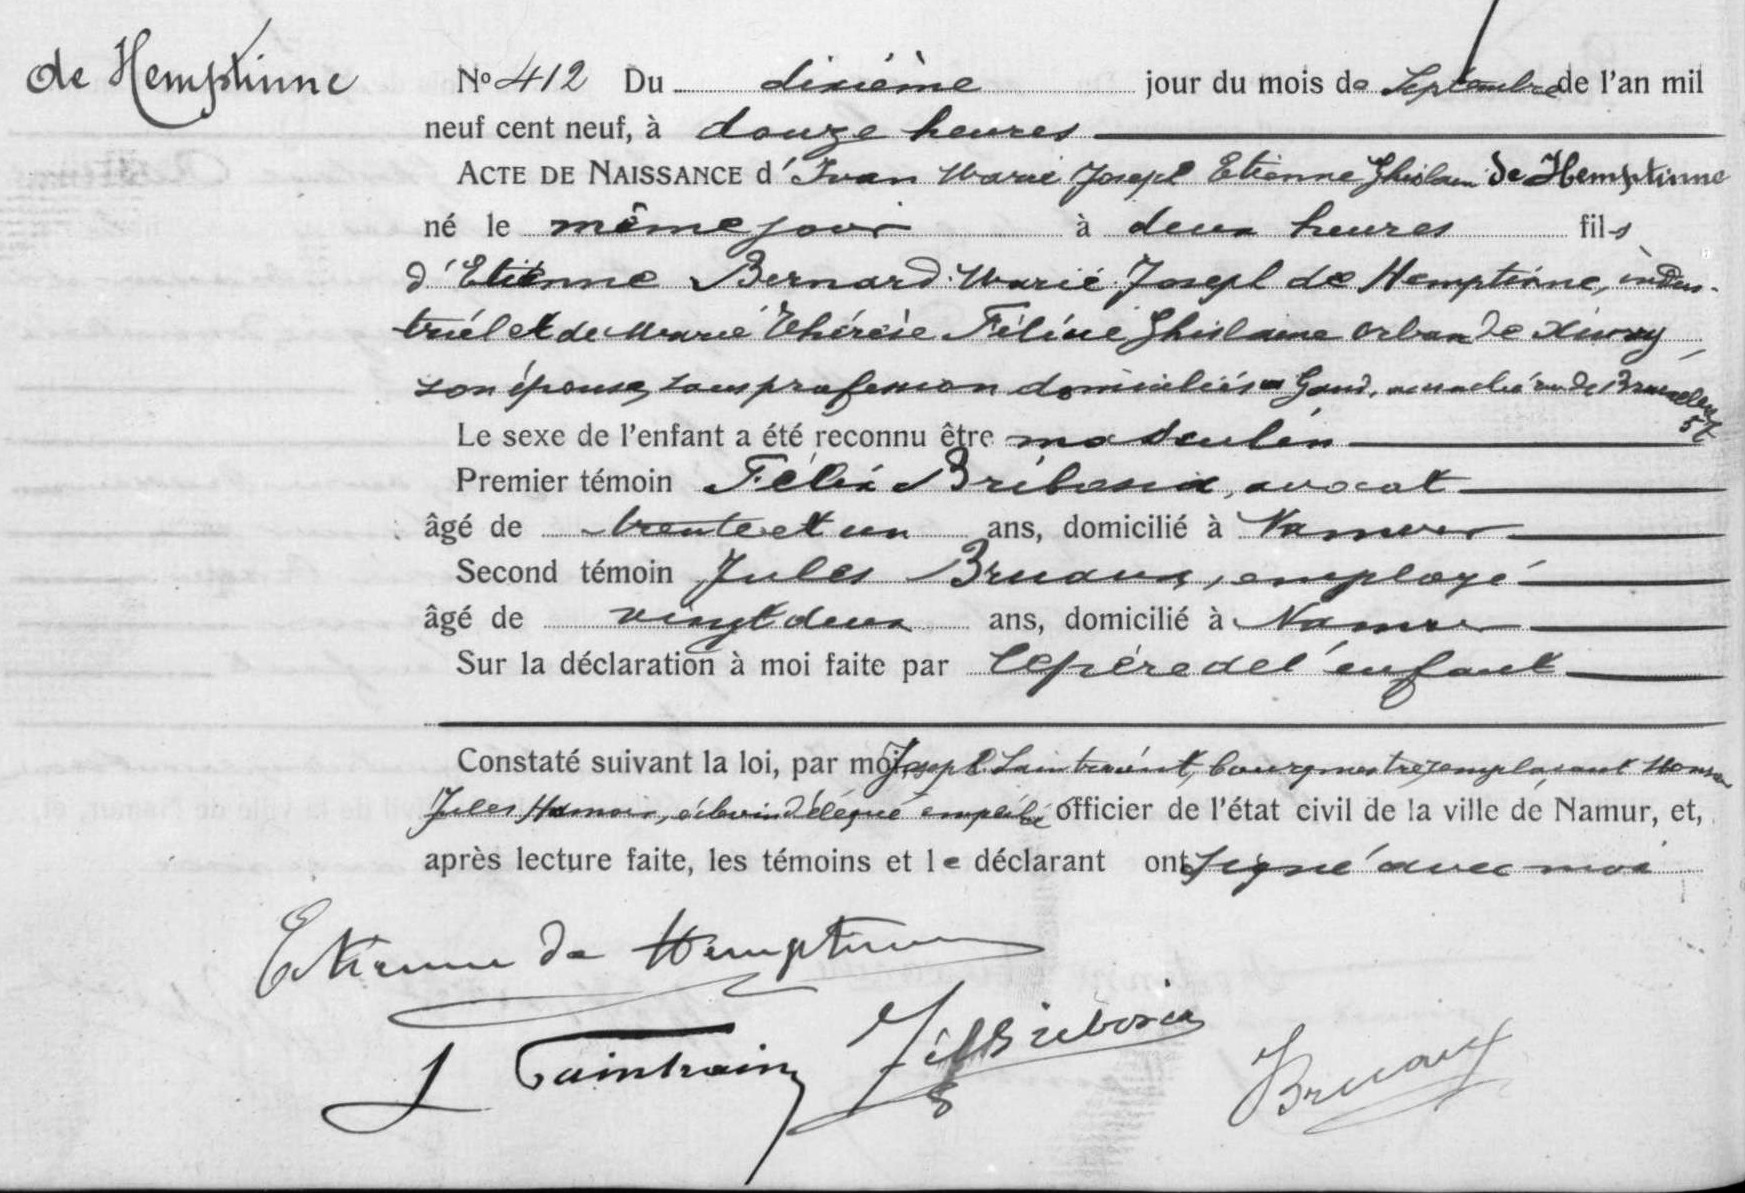 de Hemptinne
No 412 Du dixième jour du mois de Septembre de l'an mil
neuf cent neuf, à douze heures
ACTE DE NAISSANCE d'Ivan Marie Joseph Etienne Ghislain de Hemptinne
né le même jour à deux heures fils
d'Etienne Bernard Marie Joseph de Hemptinne, indus-
triel et de Marie Thérèse Féline Ghislaine Orban de Xivry
son épouse, sans profession domiciliés à Gand, rue de Bruxelles
57
Le sexe de l'enfant a été reconnu être masculin
Premier témoin Félix Bribosia, avocat
âgé de trente et un ans, domicilié à Namur
Second témoin Jules Bruaux, employé
âgé de vingt deux ans, domicilié à Namur
Sur la déclaration à moi faite par le père de l'enfant
Constaté suivant la loi, par moi Joseph Saintraint, bourgmestre, remplaçant Monsr
Jules Hamoir, échevin délégué empêché officier de l'état civil de la ville de Namur, et,
après lecture faite, les témoins et le déclarant ont signé avec moi
Etienne de Hemptinne
J Saintraint Fél Bribosia
J Bruaux